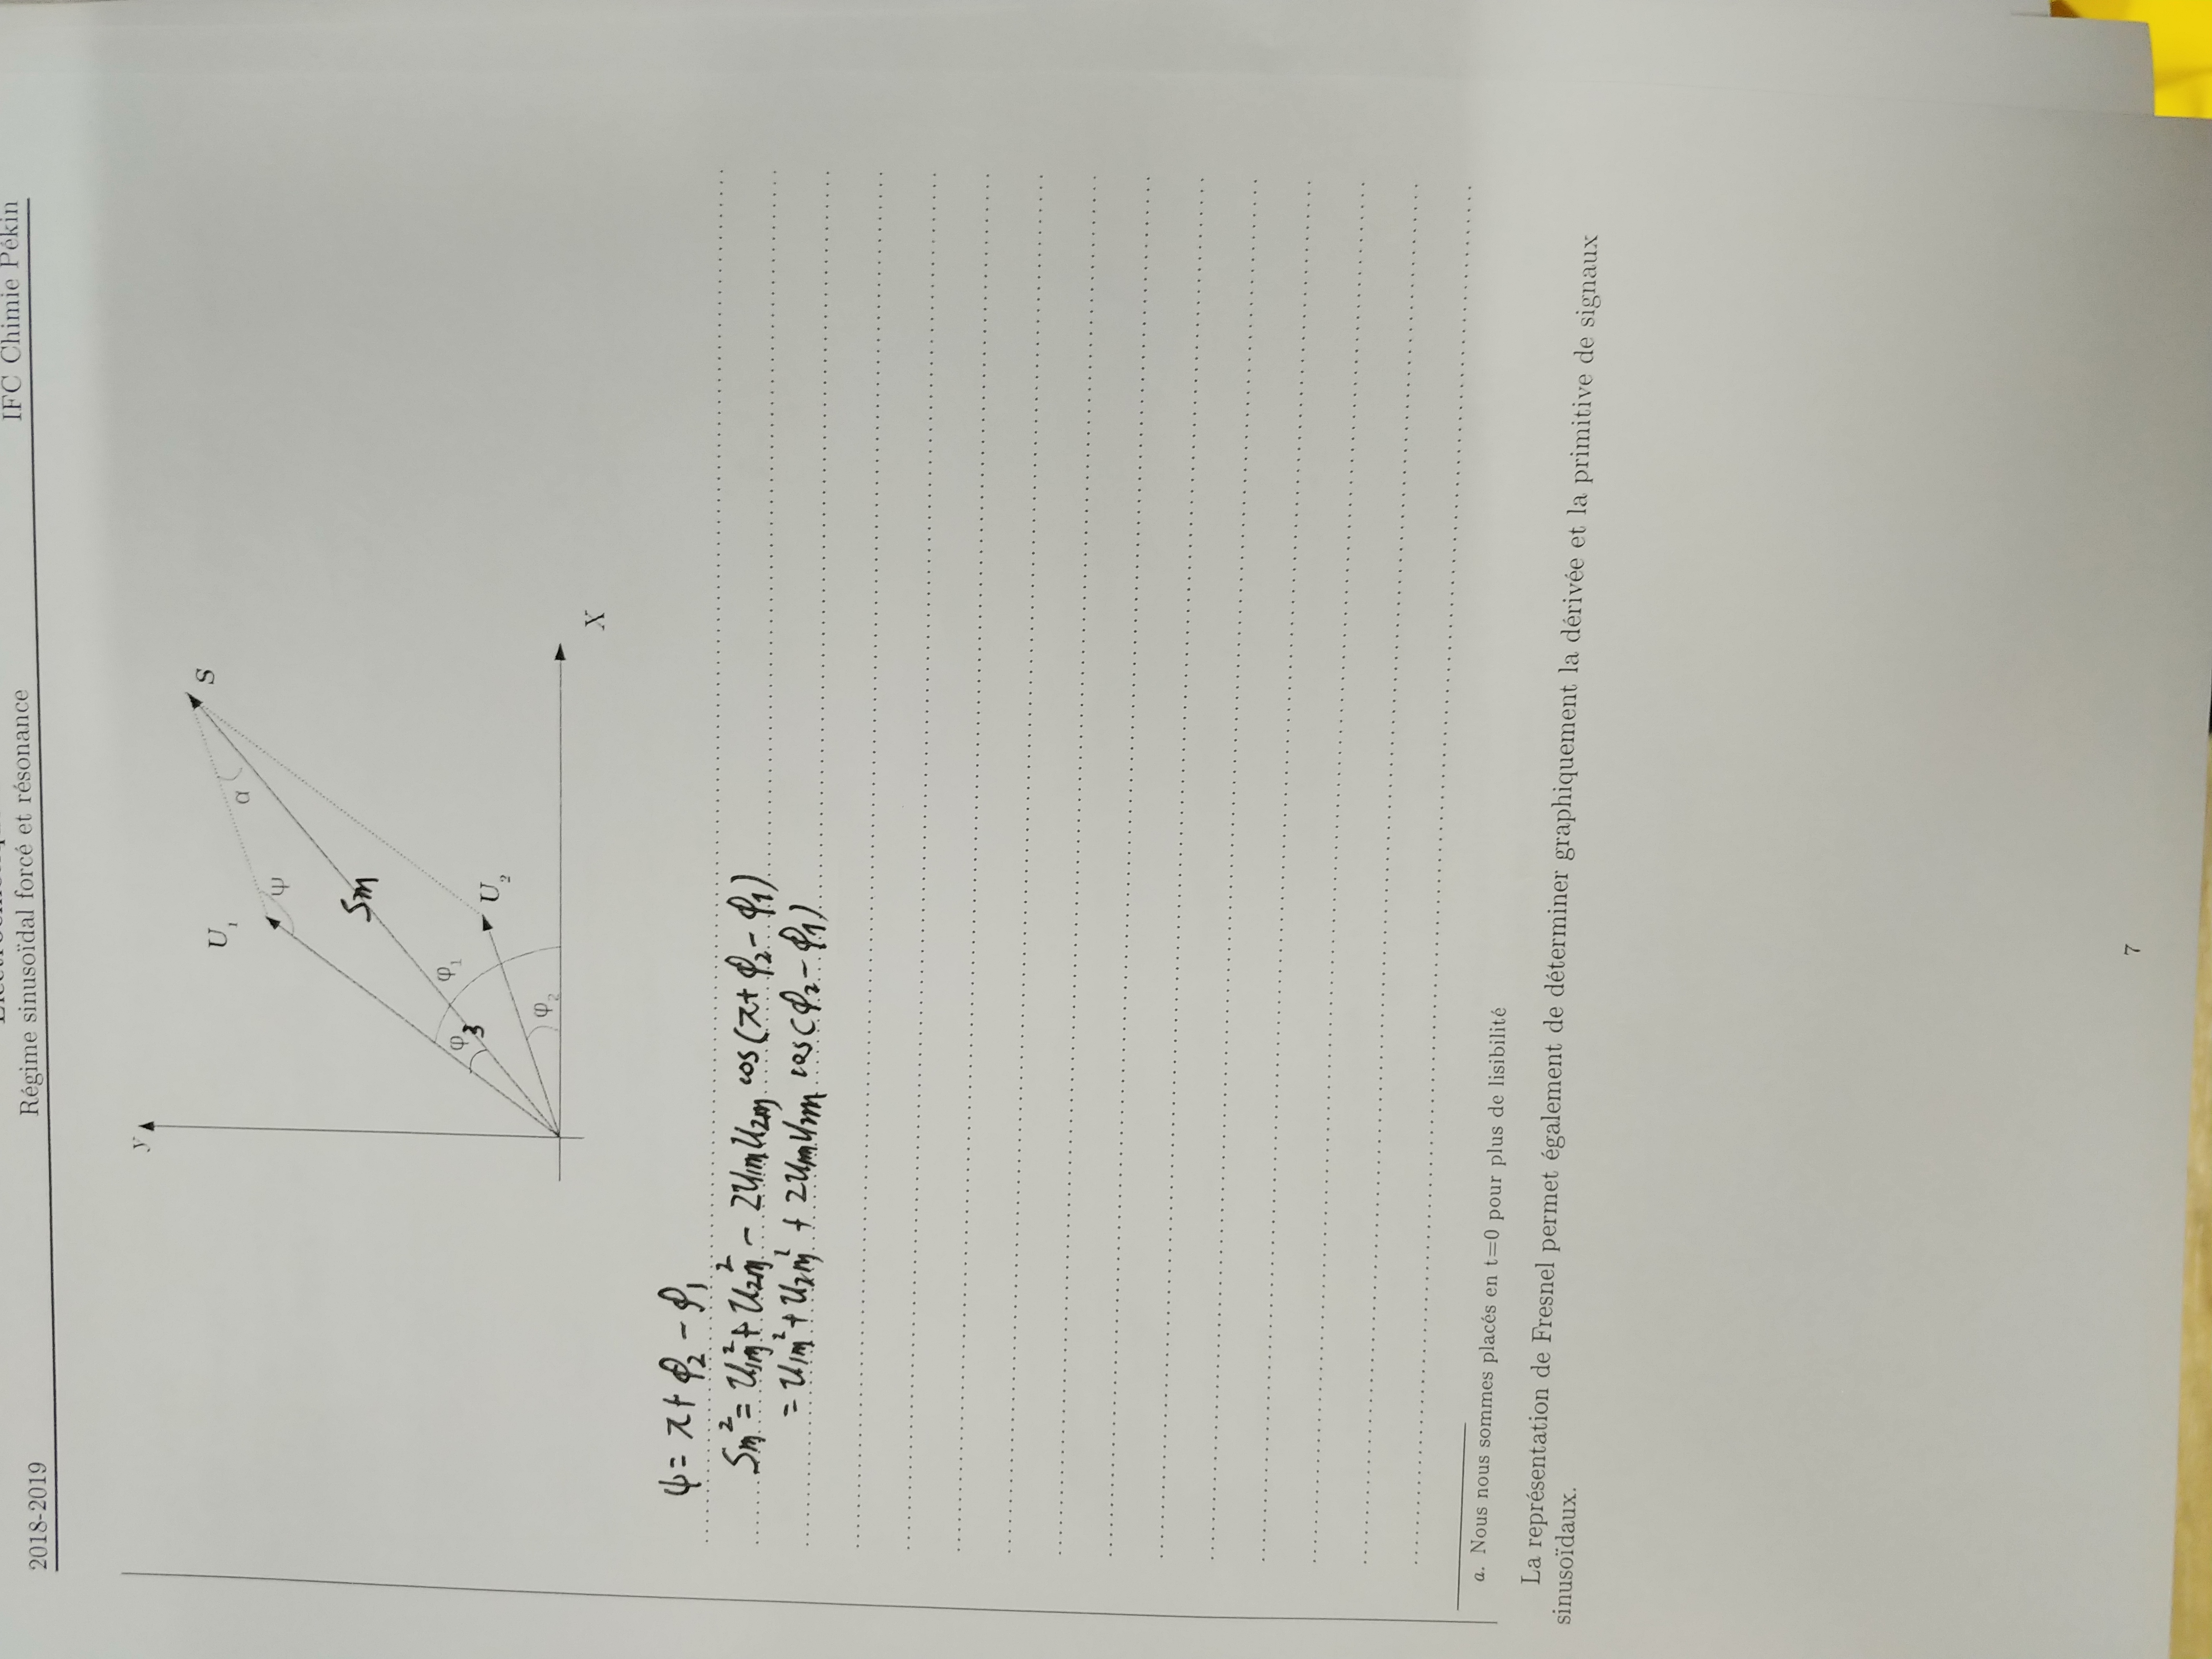 2018-2019
Régime sinusoïdal forcé et résonance
IFC Chimie Pékin
y
U₁
S
α
ψ
Sm
φ₁
φ3
U₂
φ₂
X
ψ = π + φ₂ - φ₁
Sm² = U1m² + U2m² - 2U1m U2m cos (π + φ₂ - φ₁)
= U1m² + U2m² + 2U1m U2m cos (φ₂ - φ₁)
a. Nous nous sommes placés en t=0 pour plus de lisibilité
La représentation de Fresnel permet également de déterminer graphiquement la dérivée et la primitive de signaux
sinusoïdaux.
7